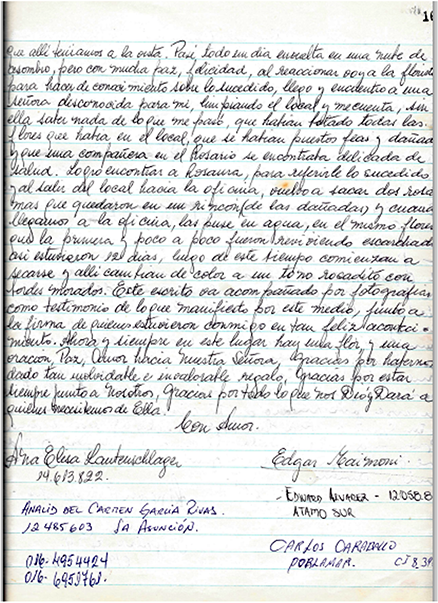 16
que alli teniamos a la vista. Pasé todo un dia envuelta en una nube de
asombro, pero con mucha paz, felicidad, al reaccionar voy a la floris
para hacer de conocimiento sobre lo sucedido, llego y encuentro a una
señora desconocida para mi, limpiando el local, y me cuenta, sin
ella saber nada de lo que me pasó, que habian botado todas las
flores que habia en el local, que se habian puestos feas y dañada
y que una compañera en el Rosario se encontraba delicada de
salud. Logro encontrar a Rosaura, para referirle lo sucedido
y al salir del local hacia la oficina, vuelvo a sacar dos rosa
mas que quedaron en un rincon (de las dañadas) y cuand
llegamos a la oficina, las puse en agua, en el mismo florer
que la primera y poco a poco fueron reviviendo escarchad
asi estuvieron 12 dias, luego de este tiempo comienzan a
secarse y alli cambian de color a un tono rosadito con
bordes morados. Este escrito va acompañado por fotografias
como testimonio de lo que manifiesto por este medio, junto a
la firma de quienes estuvieron conmigo en tan feliz aconteci-
miento. Ahora y siempre en este lugar hay una flor y una
oracion, Paz, Amor hacia Nuestra Señora, Gracias por habernos
dado tan inolvidable e invalorable regalo, Gracias por estar
siempre junto a nosotros, Gracias por todo lo que nos Dió y Dará a
quienes necesitemos de Ella.
Con Amor.
Ana Elisa Lautenschlager
14.613.822.
Edgar Maimoni.
- EDWARD ALVAREZ - 12.058.8
ATAMO SUR
ANALID DEL CARMEN GARCIA RIVAS.
12 485603 LA ASUNCIÓN.
016. 4954424
016. 6953768.
CARLOS
PORLAMAR. CI 8,39